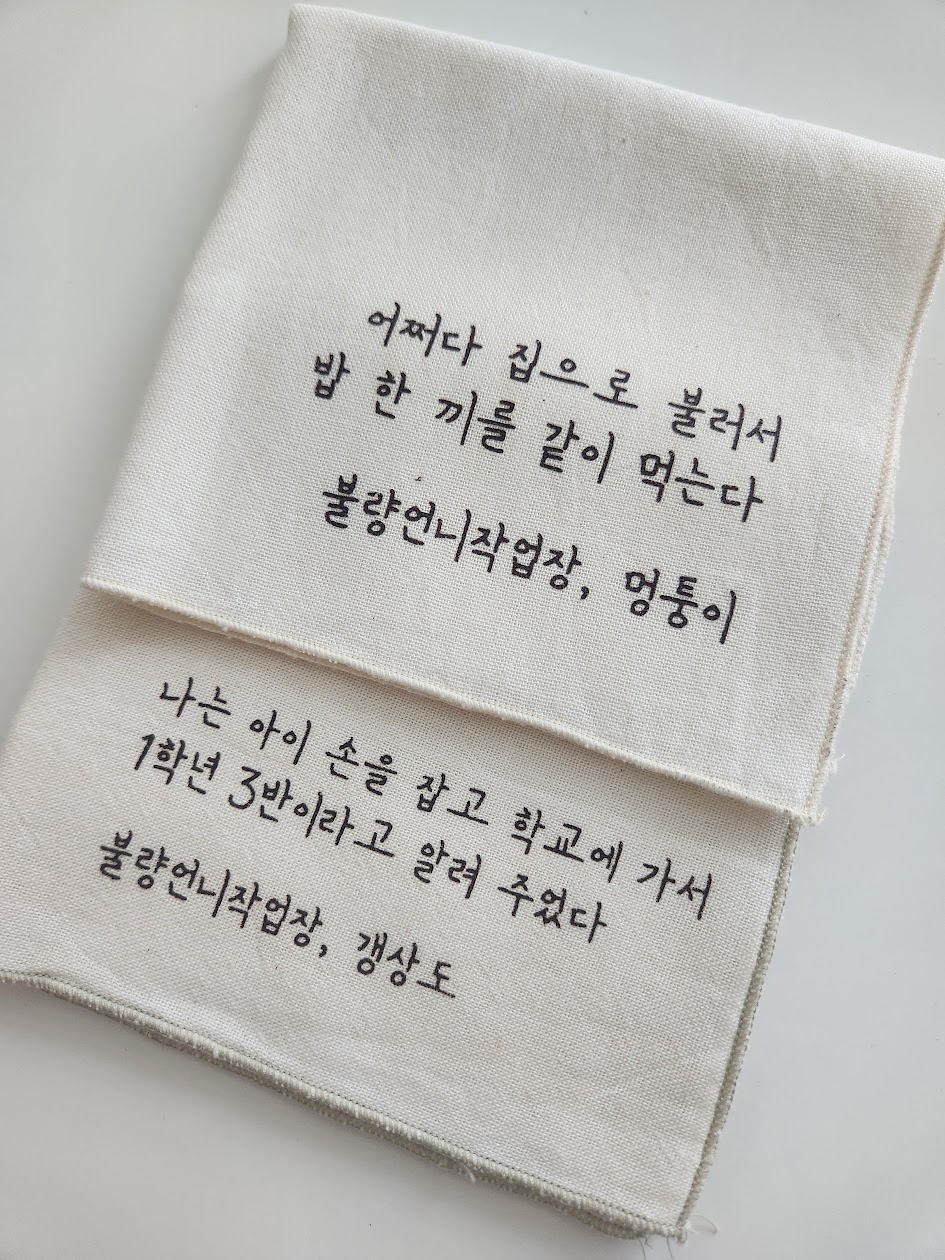 어쩌다 집으로 불러서
밥 한 끼를 같이 먹는다
불량언니작업장, 멍퉁이
나는 아이 손을 잡고 학교에 가서
1학년 3반이라고 알려 주었다
불량언니작업장, 갱상도